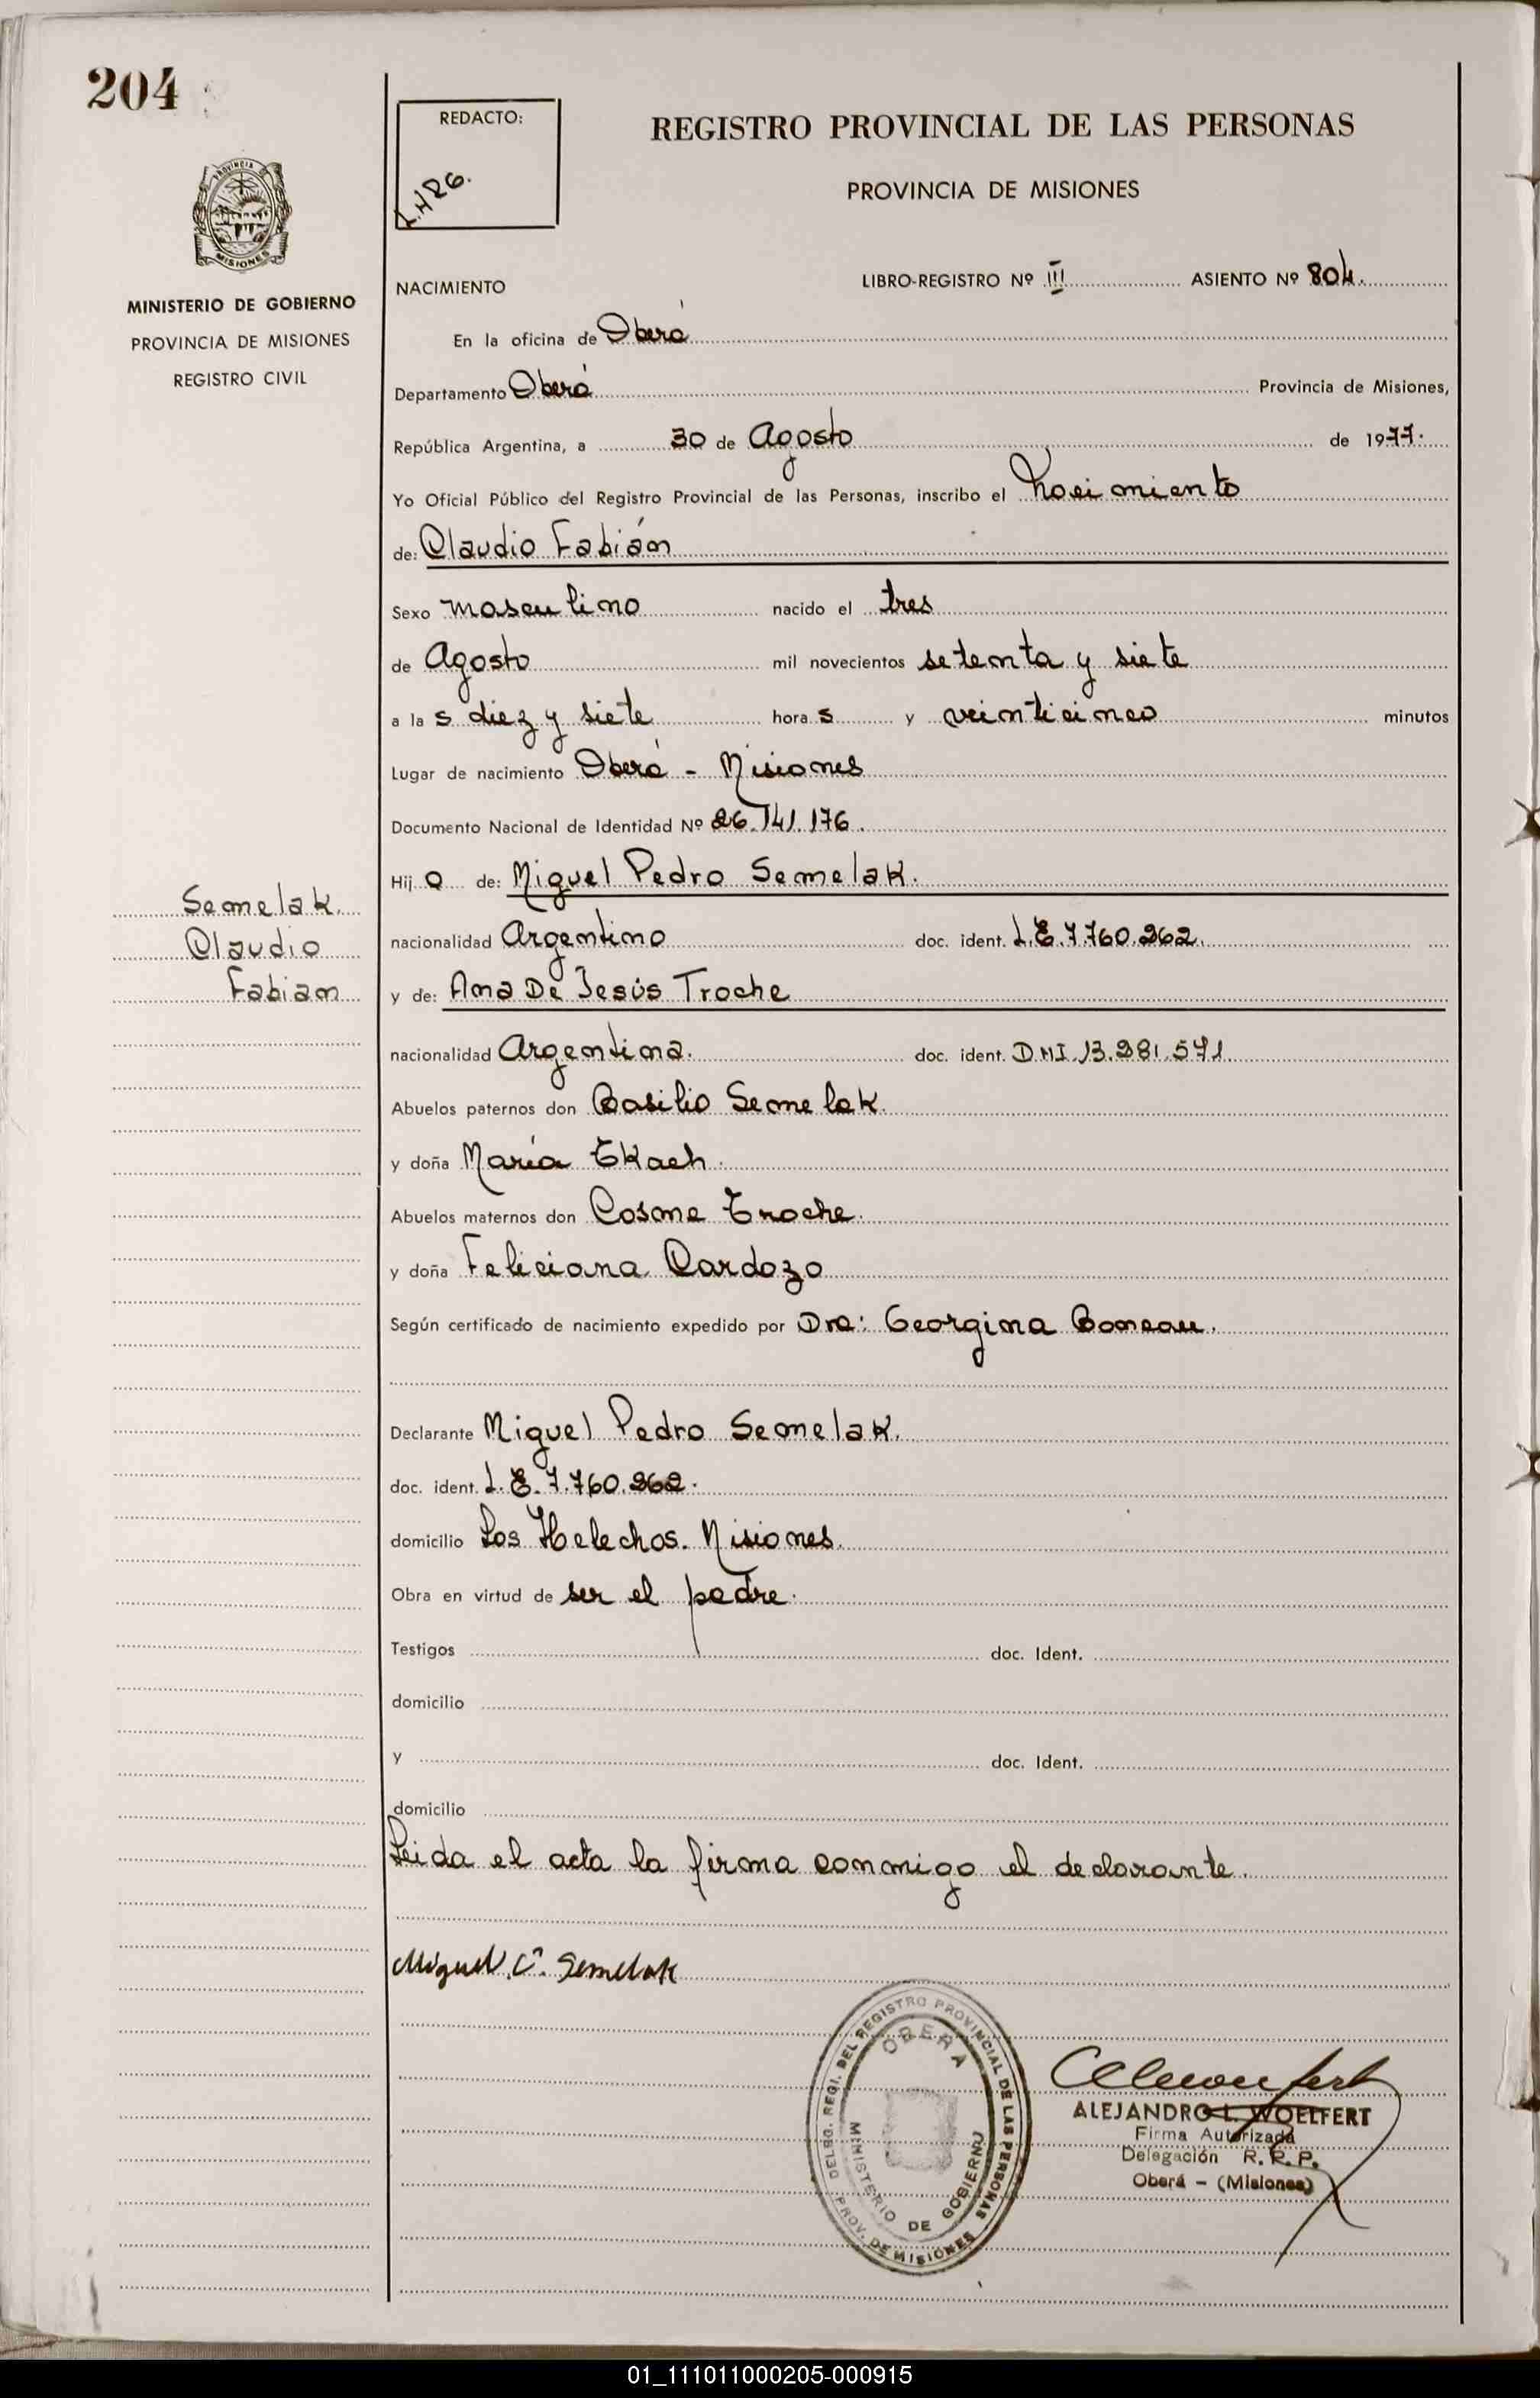 204
REDACTO:
L.H.R.G.
REGISTRO PROVINCIAL DE LAS PERSONAS
PROVINCIA DE MISIONES
PROVINCIA DE
MISIONES
MINISTERIO DE GOBIERNO
PROVINCIA DE MISIONES
REGISTRO CIVIL
NACIMIENTO LIBRO-REGISTRO Nº III ASIENTO Nº 804.
En la oficina de Oberá
Departamento Oberá Provincia de Misiones,
República Argentina, a 30 de Agosto de 1977.
Yo Oficial Público del Registro Provincial de las Personas, inscribo el Nacimiento
de: Claudio Fabián
Sexo masculino nacido el tres
de Agosto mil novecientos setenta y siete
a la s diez y siete hora s y veinticinco minutos
Lugar de nacimiento Oberá - Misiones
Documento Nacional de Identidad Nº 26.141.176.
Hij o de: Miguel Pedro Semelak.
nacionalidad Argentino doc. ident. L.E. 7.760.262.
y de: Ana De Jesús Troche
nacionalidad Argentina. doc. ident. D.N.I. 13.281.571
Abuelos paternos don Basilio Semelak.
y doña María Tkach.
Abuelos maternos don Cosme Troche.
y doña Feliciana Cardozo
Según certificado de nacimiento expedido por Dra: Georgina
Semelak.
Claudio
Fabian
Declarante Miguel Pedro Semelak.
doc. ident. L.E. 7.760.262.
domicilio Los Helechos. Misiones.
Obra en virtud de ser el padre.
Testigos doc. Ident.
domicilio
y doc. Ident.
domicilio
Leida el acta la firma conmigo el declarante.
Miguel P. Semelak
DELEG. REGI. DEL REGISTRO PROVINCIAL DE LAS PERSONAS
OBERA
MINISTERIO DE GOBIERNO
PROV. DE MISIONES
ALEJANDRO L. WOELFERT
Firma Autorizada
Delegación R. R. P.
Oberá - (Misiones)
01_111011000205-000915